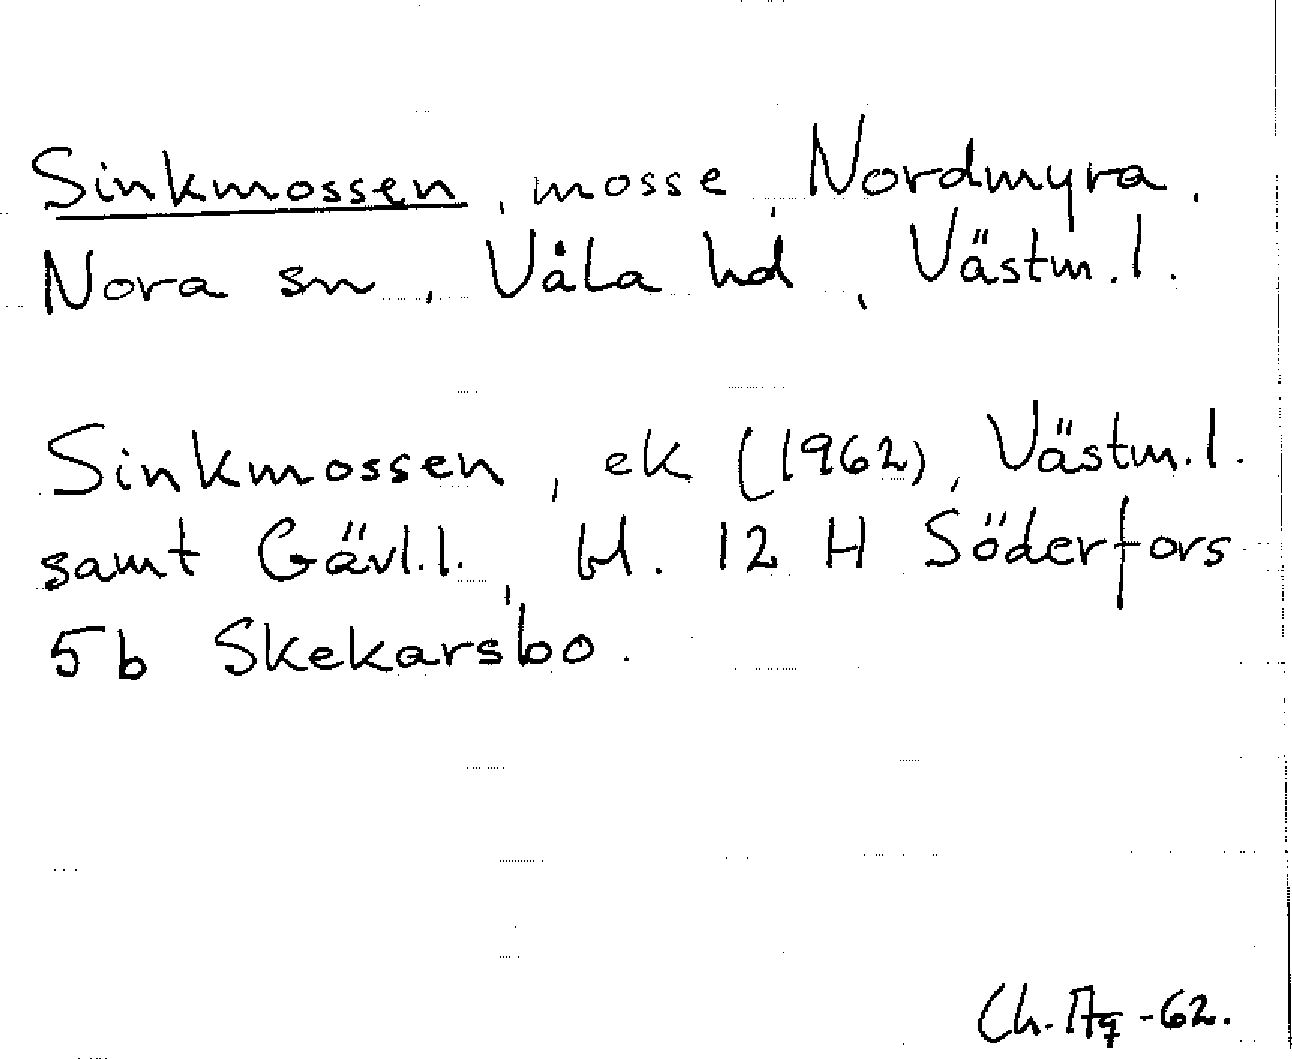 Sinkmossen, mosse, Nordmyra.
Nora sn, Våla hd, Västm.l.
Sinkmossen, ek (1962), Västm.l.
samt Gävl.l., bl. 12 H Söderfors
5b Skekarsbo.
Ch. -62.